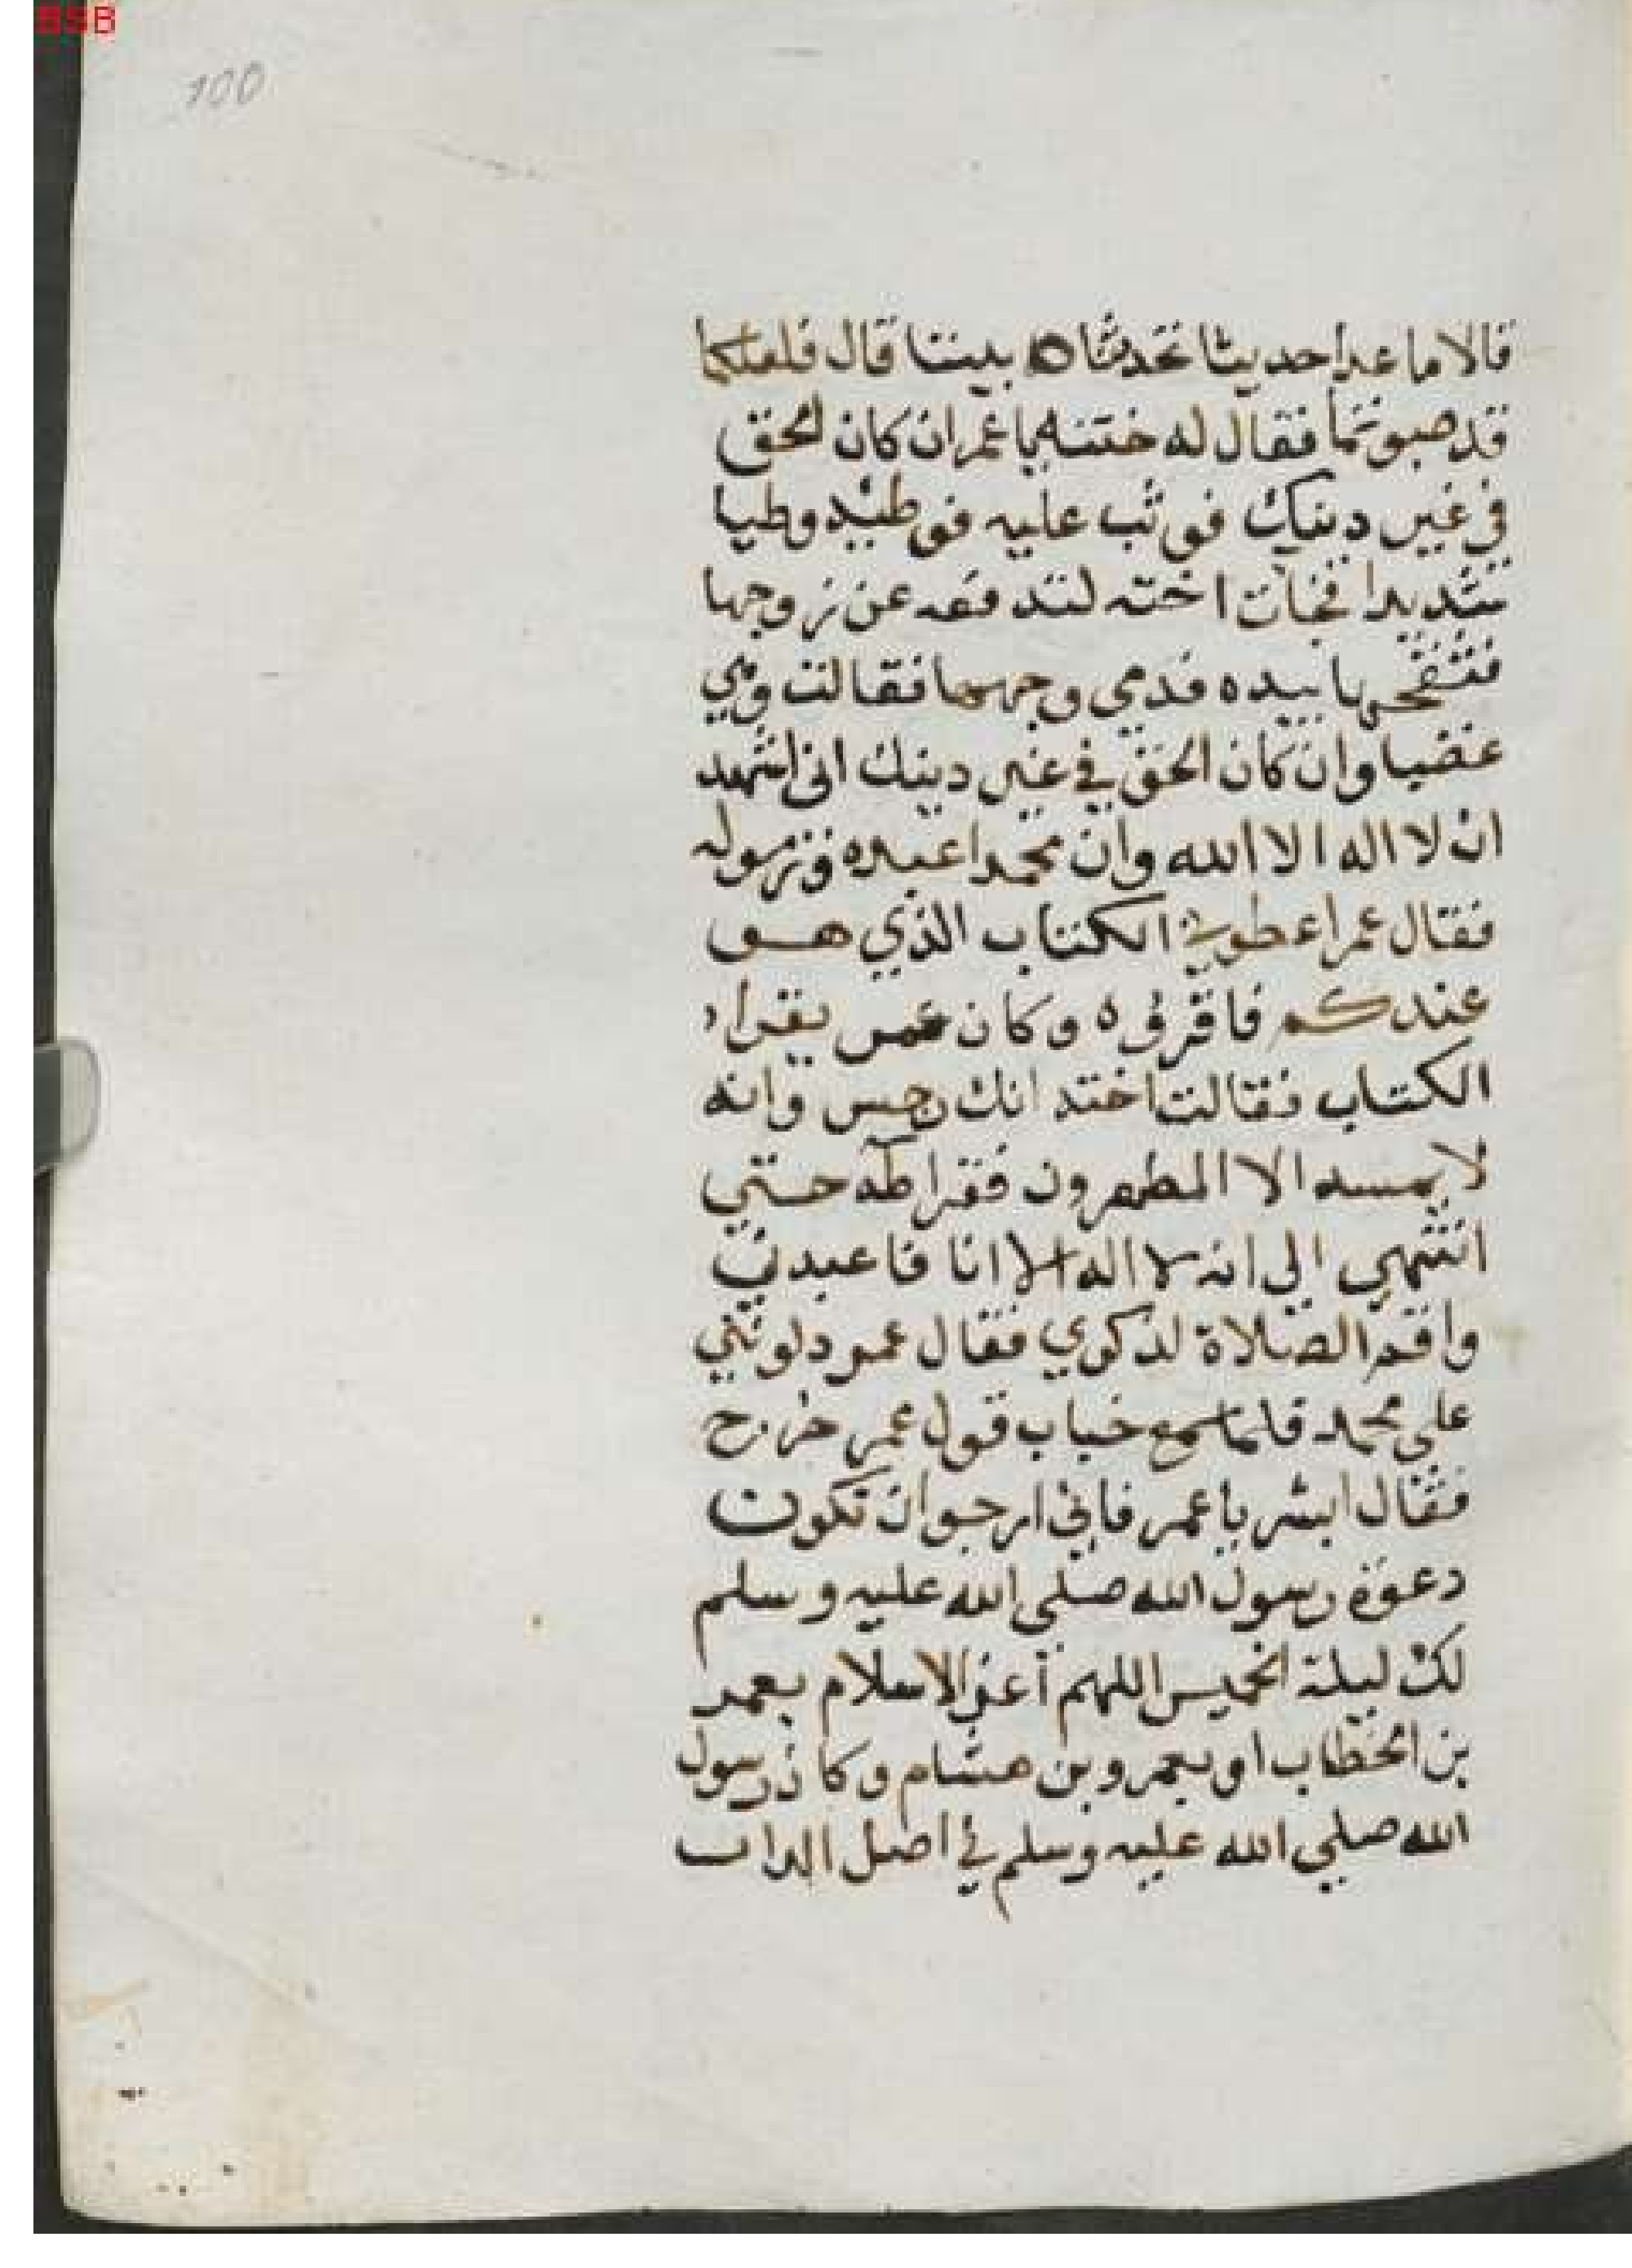 BSB
100
قالا ما عدا حديثا تحدثناه بيننا قال فلعلكما
قد صبوتما فقال له ختنه يا عمر ان كان الحق
في غير دينك فوثب عليه فوطيه وطيا
شديدا فجات اخته لتدفعه عن زوجها
فنفحها بيده فدمي وجهها فقالت وهي
غضبا وان كان الحق في غير دينك اني اشهد
ان لا اله الا الله وان محمدا عبده ورسوله
فقال عمر اعطوني الكتاب الذي هو
عندكم فاقروه وكان عمر يقرا
الكتاب فقالت اخته انك رجس وانه
لا يمسه الا المطهرون فقرا طه حتي
انتهي الي انه لا اله الا انا فاعبدني
واقم الصلاة لذكري فقال عمر دلوني
علي محمد فلما سمع خباب قول عمر خرج
فقال ابشر يا عمر فاني ارجوا ان تكون
دعوة رسول الله صلي الله عليه وسلم
لك ليلة الخميس اللهم أعز الاسلام بعمر
بن الخطاب او بعمرو بن هشام وكان رسول
الله صلي الله عليه وسلم في اصل الدار